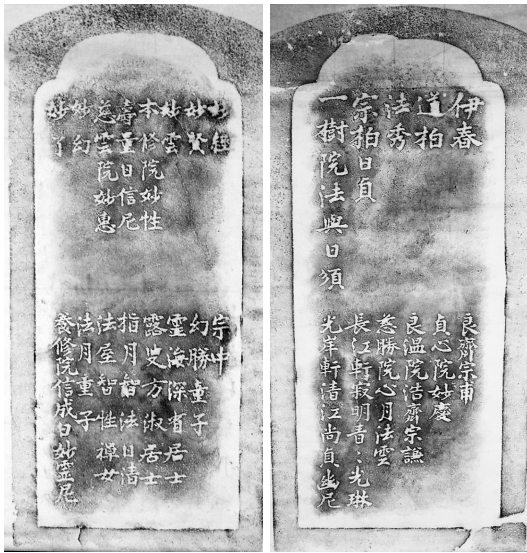 伊春
道拍
法秀
宗拍日負
一樹院法與日須
良齊宗甫
貞心院妙慶
良温院浩齊宗謙
慈勝院心月法雲
長江軒寂明青々光琳
光岸軒清江尚貞幽尼
妙經
妙賢
妙雲
本修院妙性
壽量日信尼
慈雲院妙惠
妙幻
妙了
宗中
幻勝童子
靈海深省居士
露叟方淑居士
指月智法日清
法屋智性禪女
法月童子
養修院信成日妙靈尼